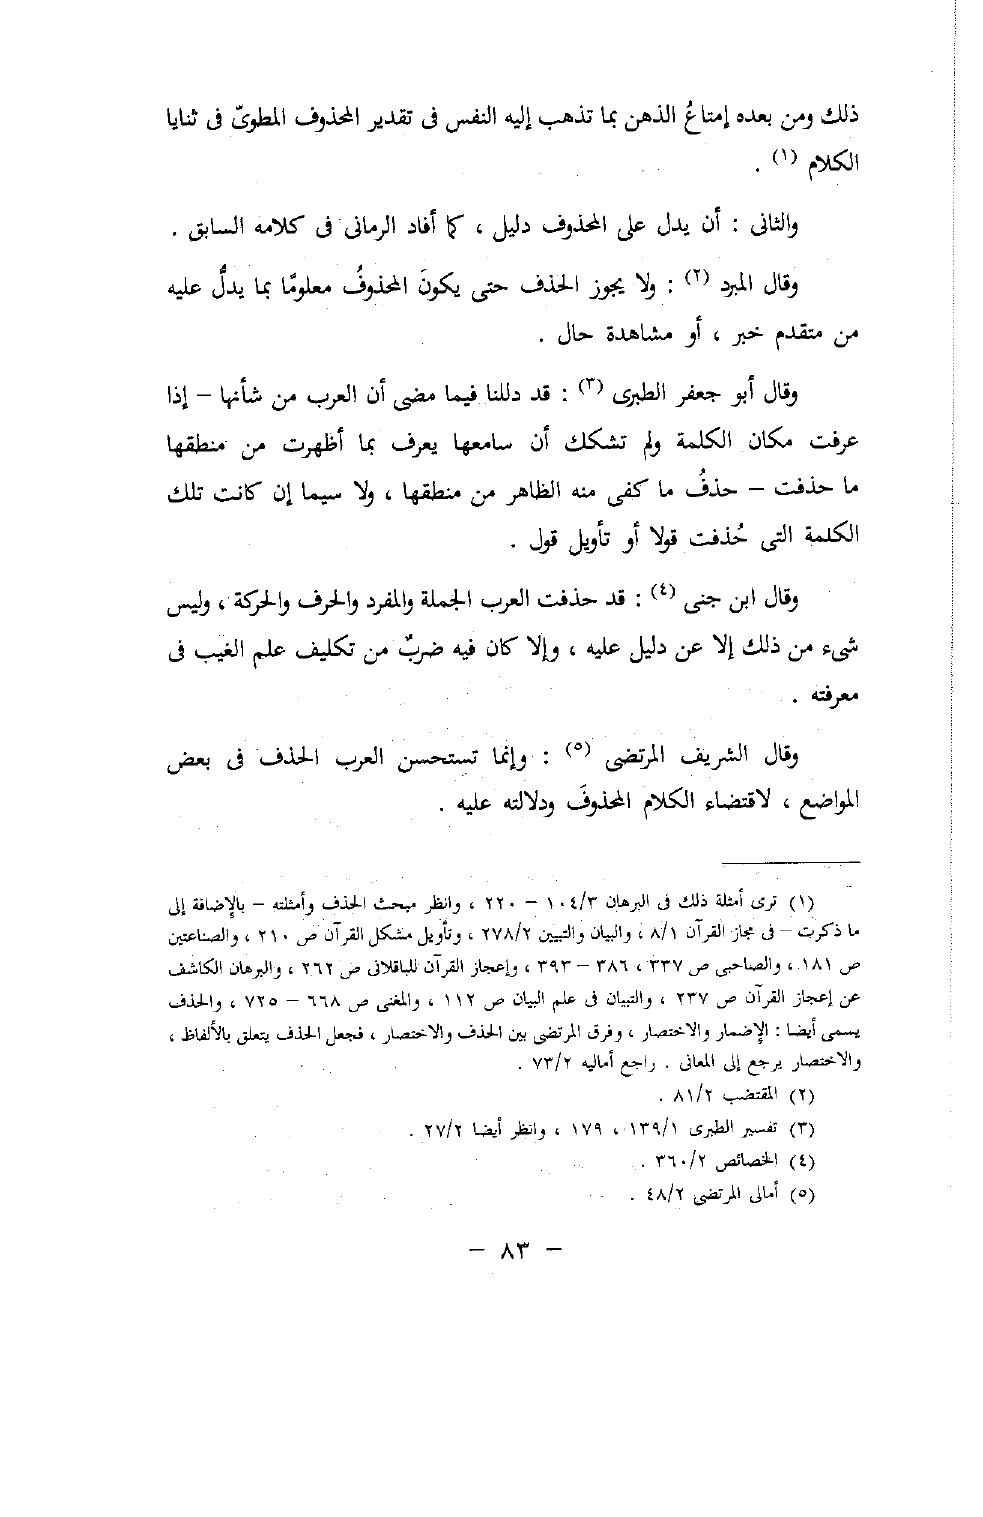 ذلك ومن بعده إمتاعُ الذهن بما تذهب إليه النفس فى تقدير المحذوف المطوىّ فى ثنايا
الكلام (١) .
والثانى : أن يدل على المحذوف دليل ، كما أفاد الرمانى فى كلامه السابق .
وقال المبرد (٢) : ولا يجوز الحذف حتى يكونَ المحذوفُ معلومًا بما يدلُّ عليه
من متقدم خبر ، أو مشاهدة حال .
وقال أبو جعفر الطبرى (٣) : قد دللنا فيما مضى أن العرب من شأنها – إذا
عرفت مكان الكلمة ولم تشكك أن سامعها يعرف بما أظهرت من منطقها
ما حذفت – حذفُ ما كفى منه الظاهر من منطقها ، ولا سيما إن كانت تلك
الكلمة التى حُذفت قولا أو تأويل قول .
وقال ابن جنى (٤) : قد حذفت العرب الجملة والمفرد والحرف والحركة ، وليس
شىء من ذلك إلا عن دليل عليه ، وإلا كان فيه ضربٌ من تكليف علم الغيب فى
معرفته .
وقال الشريف المرتضى (٥) : وإنما تستحسن العرب الحذف فى بعض
المواضع ، لاقتضاء الكلام المحذوفَ ودلالته عليه .
(١) ترى أمثلة ذلك فى البرهان ١٠٤/٣ – ٢٢٠ ، وانظر مبحث الحذف وأمثلته – بالإضافة إلى
ما ذكرت – فى مجاز القرآن ٨/١ ، والبيان والتبيين ٢٧٨/٢ ، وتأويل مشكل القرآن ص ٢١٠ ، والصناعتين
ص ١٨١ ، والصاحبى ص ٣٣٧ ، ٣٨٦ – ٣٩٣ ، وإعجاز القرآن للباقلانى ص ٢٦٢ ، والبرهان الكاشف
عن إعجاز القرآن ص ٢٣٧ ، والتبيان فى علم البيان ص ١١٢ ، والمغنى ص ٦٦٨ – ٧٢٥ ، والحذف
يسمى أيضا : الإضمار والاختصار ، وفرق المرتضى بين الحذف والاختصار ، فجعل الحذف يتعلق بالألفاظ ،
والاختصار يرجع إلى المعانى . راجع أماليه ٧٣/٢ .
(٢) المقتضب ٨١/٢ .
(٣) تفسير الطبرى ١٣٩/١ ، ١٧٩ ، وانظر أيضا ٢٧/٢ .
(٤) الخصائص ٣٦٠/٢ .
(٥) أمالى المرتضى ٤٨/٢ .
– ٨٣ –